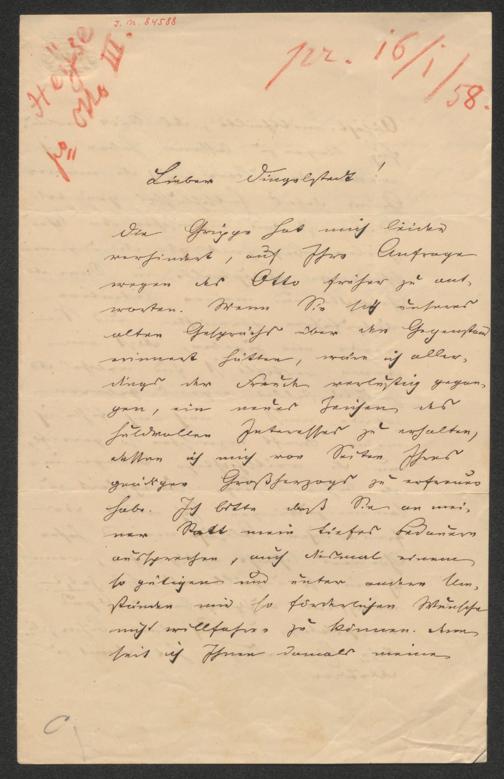 J. N. 84588
Heyse
Otto III.
pr. 16/I/58.
Lieber Dingelstedt!
Die Grippe hat mich leider
verhindert, auf Ihre Anfrage
wegen des Otto früher zu ant-
worten. Wenn Sie sich unseres
alten Gesprächs über den Gegenstand
erinnert hätten, wäre ich aller-
dings der Freude verlustig gegan-
gen, ein neues Zeichen des
huldvollen Interesses zu erhalten,
dessen ich mich von Seiten Ihres
gnädigen Großherzogs zu erfreuen
habe. Ich bitte daß Sie an mei-
ner Statt mein tiefes Bedauern
aussprechen, auch diesmal einem
so gütigen und unter andern Um-
ständen mir so förderlichen Wunsche
nicht willfahren zu können. Denn
seit ich Ihnen damals meine